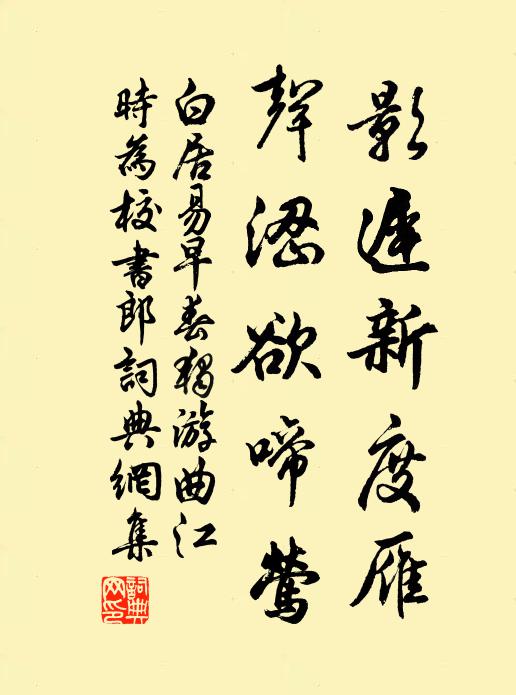 影遲新度雁
聲澀欲啼鶯
白居易早春獨游曲江
時為校書郎詞典網集
詞典網印